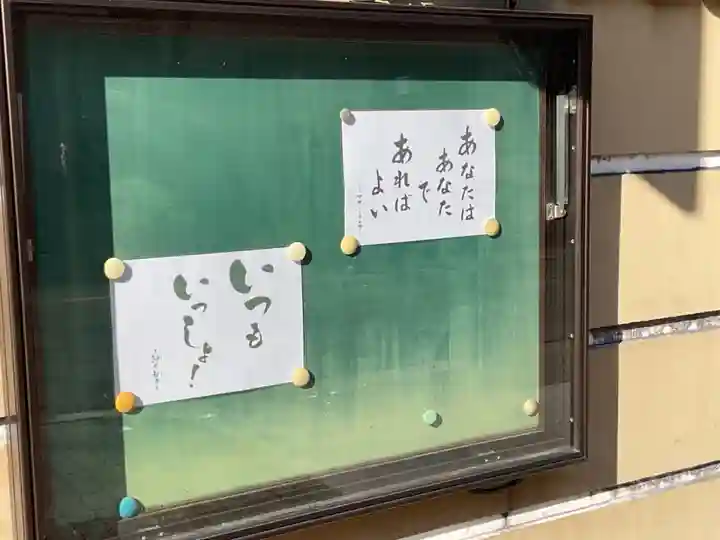 あなたは
あなた
で
あれば
よい
いつも
いっしょ!